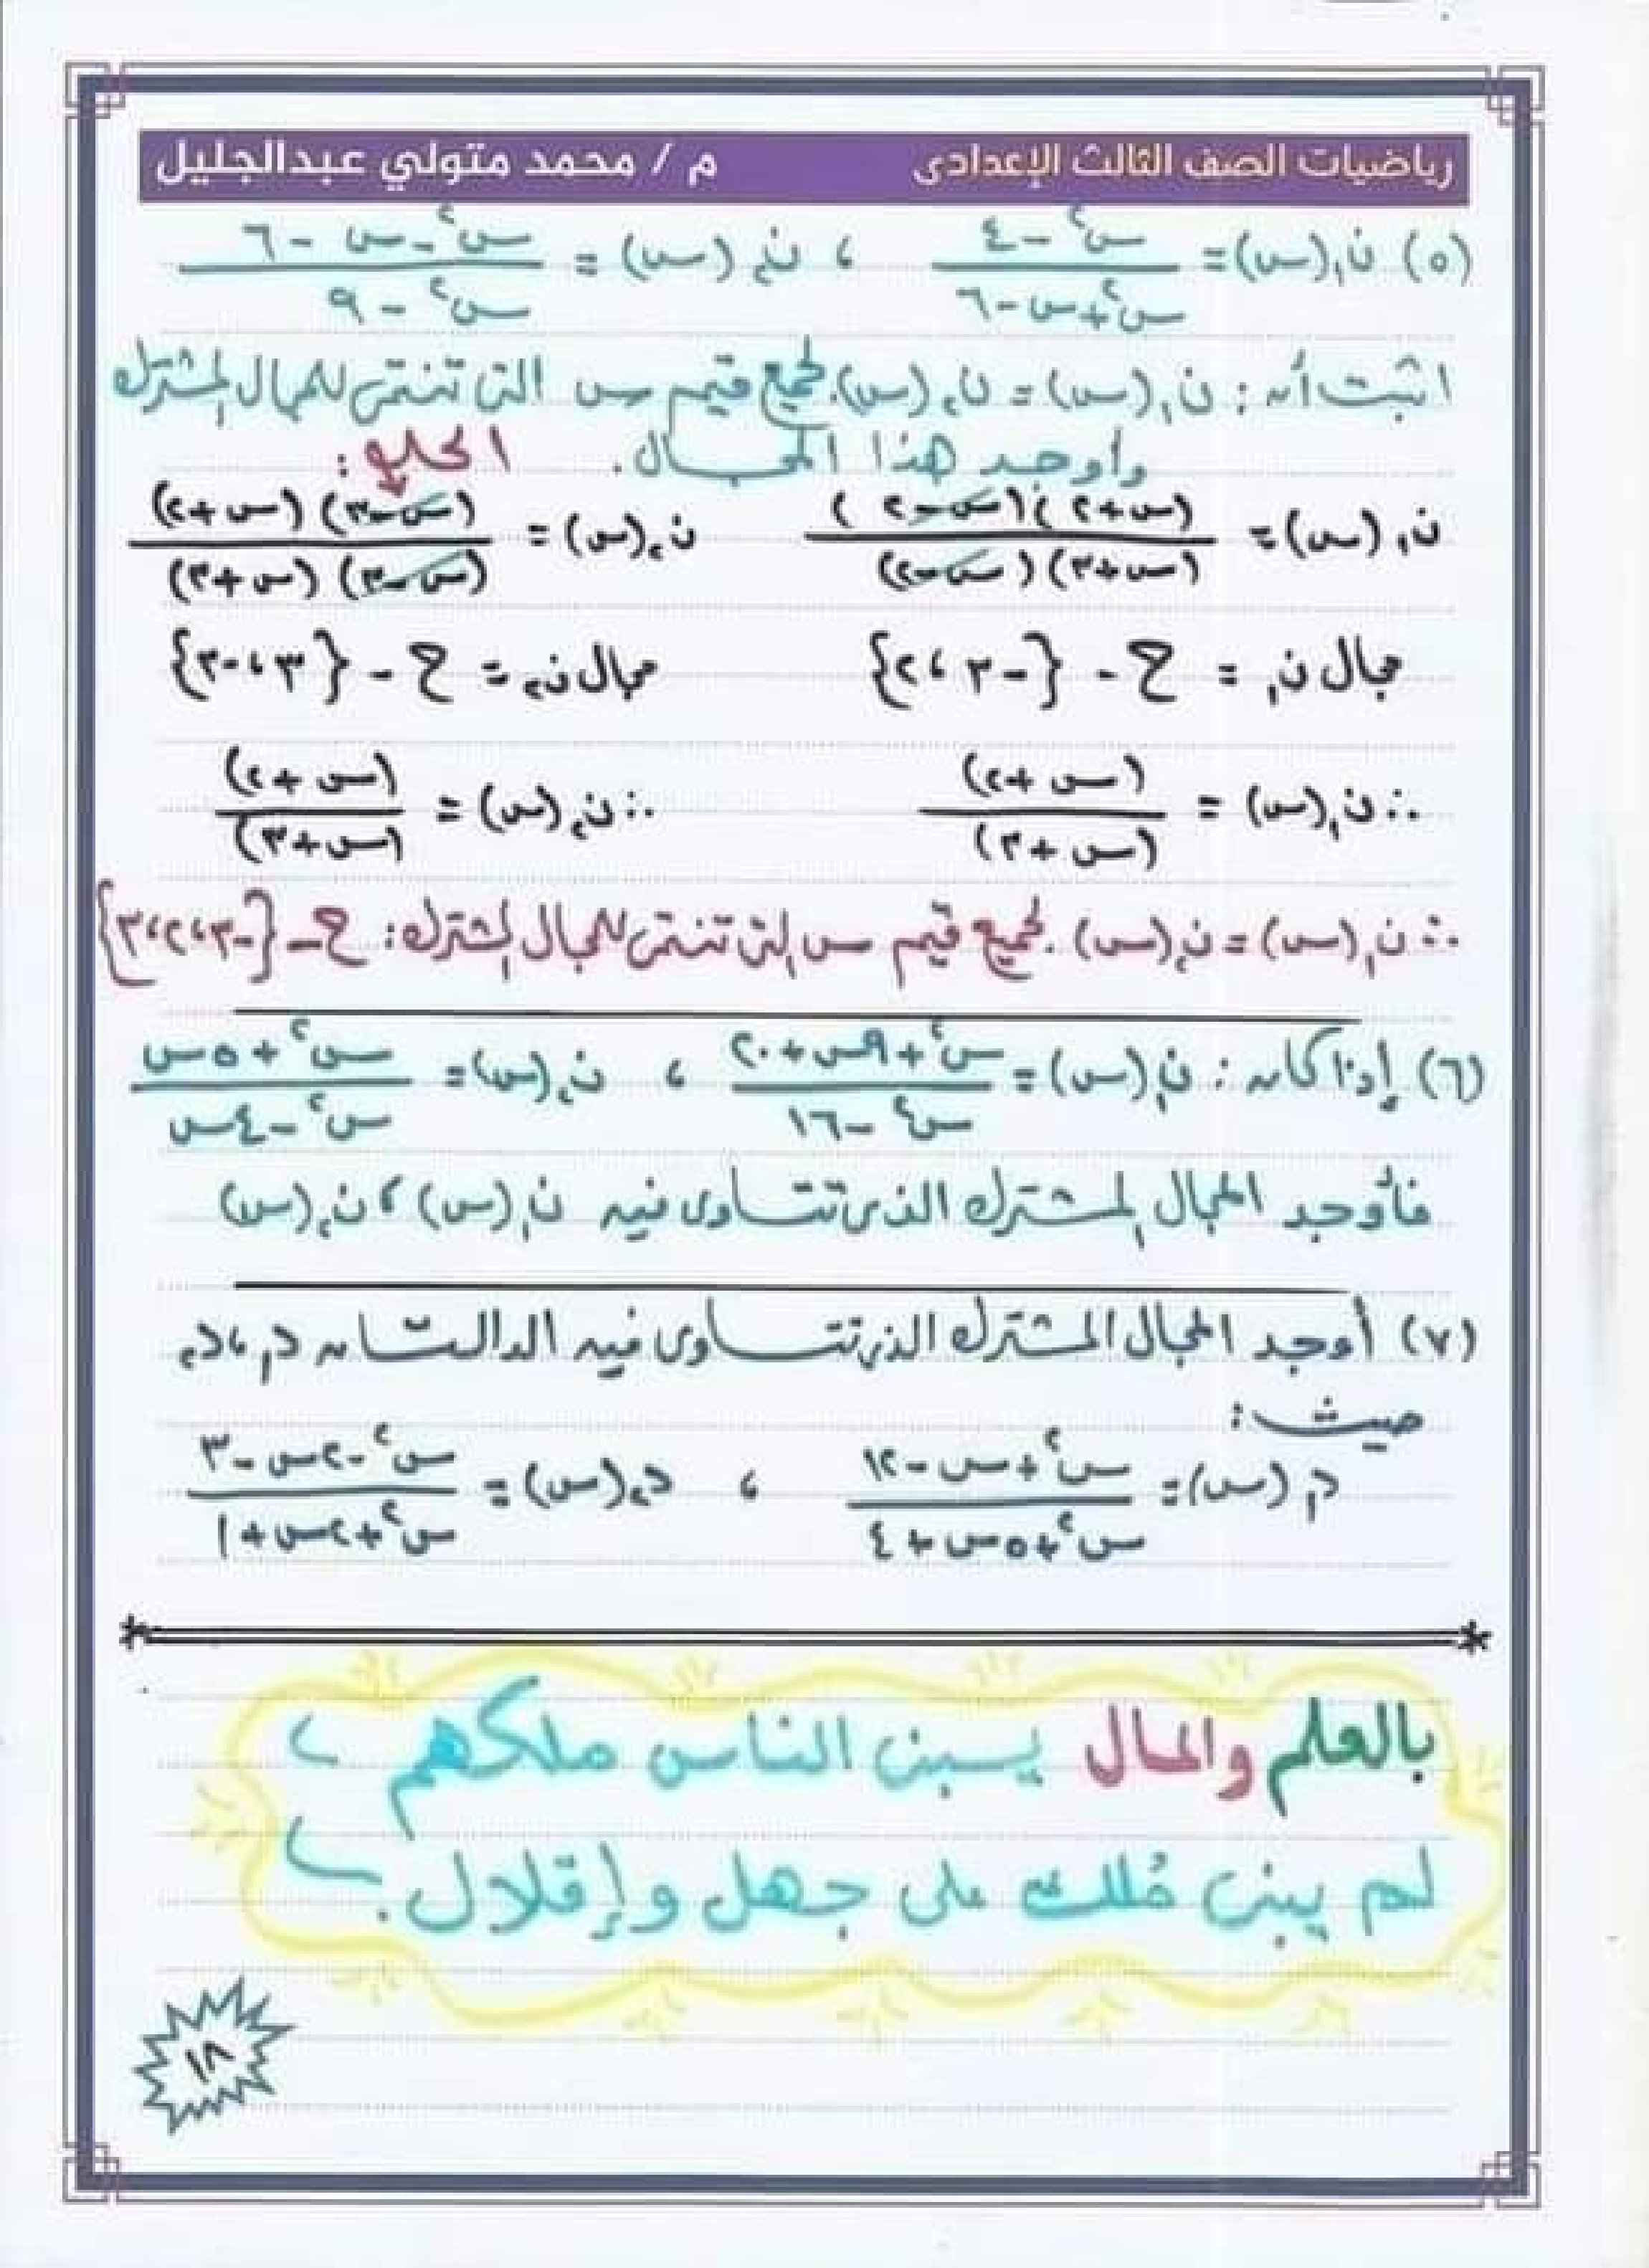 رياضيات الصف الثالث الإعدادى م / محمد متولي عبدالجليل
(٥) ن₁(س) = (س² - ٤) / (س² + س - ٦) ، ن₂(س) = (س² - س - ٦) / (س² - ٩)
اثبت أن : ن₁(س) = ن₂(س) لجميع قيم س التى تنتمى للمجال المشترك
وأوجد هذا المجال. الحلو :
ن₁(س) = (س + ٢)(س - ٢) / (س + ٣)(س - ٢) ن₂(س) = (س - ٣)(س + ٢) / (س - ٣)(س + ٣)
مجال ن₁ = ح - {-٣ ، ٢} مجال ن₂ = ح - {٣ ، -٣}
∴ ن₁(س) = (س + ٢) / (س + ٣) ∴ ن₂(س) = (س + ٢) / (س + ٣)
∴ ن₁(س) = ن₂(س) لجميع قيم س التى تنتمى للمجال المشترك : ح - {-٣ ، ٢ ، ٣}
(٦) إذا كان : ن₁(س) = (س² + ٩س + ٢٠) / (س² - ١٦) ، ن₂(س) = (س² + ٥س) / (س² - ٤س)
فأوجد المجال المشترك الذى تتساوى فيه ن₁(س) ، ن₂(س)
(٧) أوجد المجال المشترك الذى تتساوى فيه الدالتان د₁ ، د₂
حيث :
د₁(س) = (س² + س - ١٢) / (س² + ٥س + ٤) ، د₂(س) = (س² - ٢س - ٣) / (س² + ٢س + ١)
بالعلم والمال يبنى الناس ملكهم
لم يبنى مُلك على جهل وإقلال.
١٨